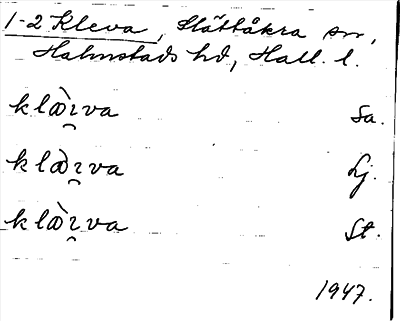 1-2 Kleva, Slättåkra sn,
Halmstads hd, Hall. l.
klæ̀ɿ̯va Sa.
klæ̀ɿ̯va Lj.
klæ̀ɿ̯va St.
1947.